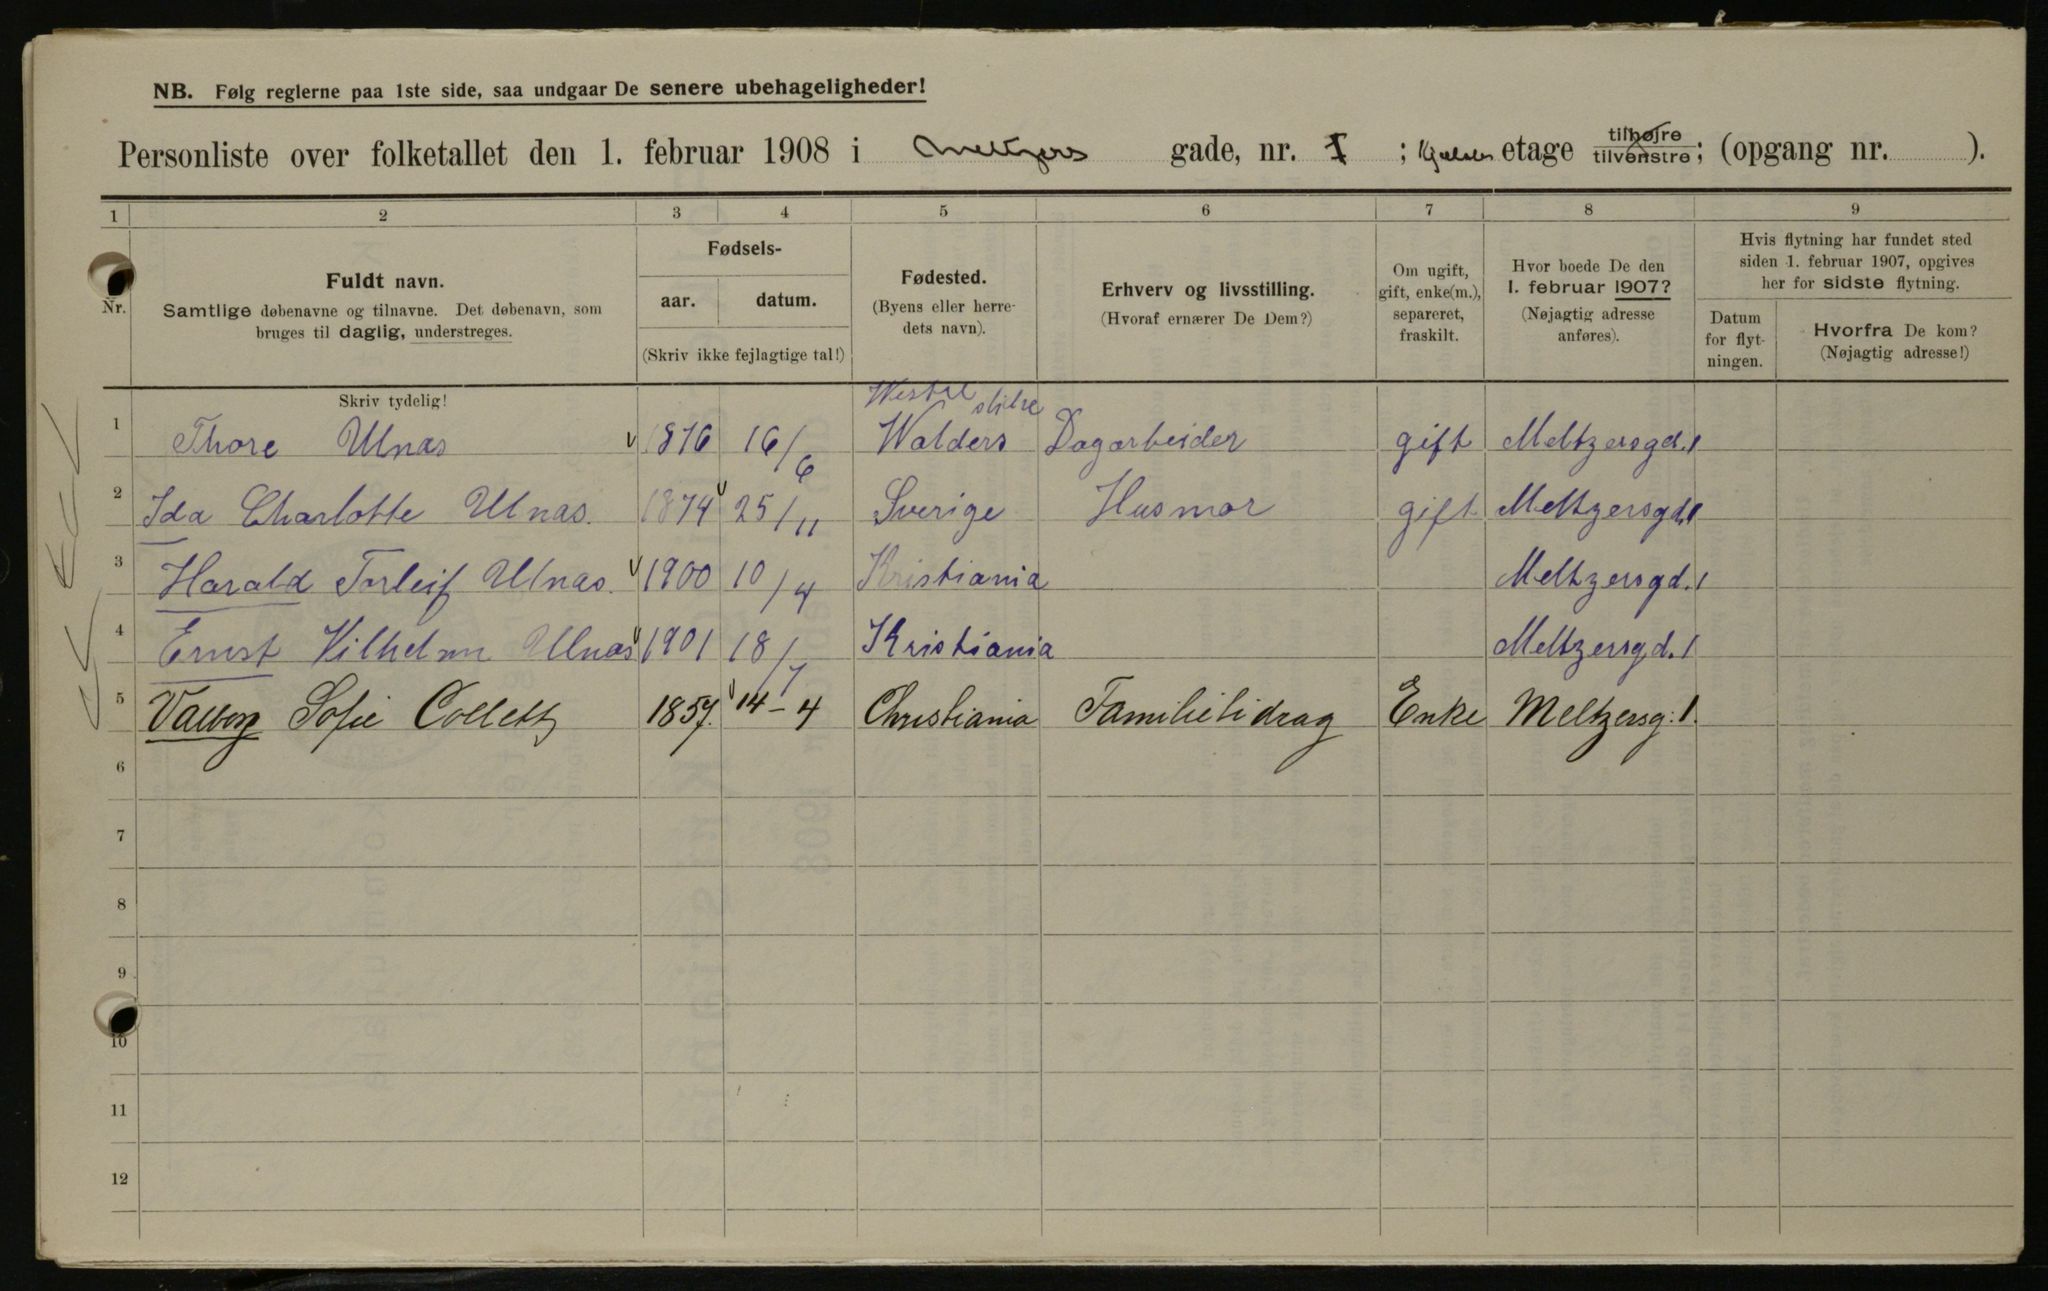 NB. Følg reglerne paa 1ste side, saa undgaar De senere ubehageligheder!
Personliste over folketallet den 1. februar 1908 i Meltzers gade, nr. 1; Kjelder etage tilhøjre tilvenstre; (opgang nr. ).
1 2 3 4 5 6 7 8 9
Nr.
Fuldt navn.
Samtlige døbenavne og tilnavne. Det døbenavn, som
bruges til daglig, understreges.
Fødsels-
aar. datum.
(Skriv ikke fejlagtige tal!)
Fødested.
(Byens eller herre-
dets navn).
Erhverv og livsstilling.
(Hvoraf ernærer De Dem?)
Om ugift,
gift, enke(m.),
separeret,
fraskilt.
Hvor boede De den
1. februar 1907?
(Nøjagtig adresse
anføres).
Hvis flytning har fundet sted
siden 1. februar 1907, opgives
her for sidste flytning.
Datum
for flyt-
ningen.
Hvorfra De kom?
(Nøjagtig adresse!)
Skriv tydelig!
1 Thore Ulnas 1876 16/6 Westre slidre Walders Dagarbeider gift Meltzersgd. 1
2 Ida Charlotte Ulnas. 1874 25/11 Sverige Husmor gift Meltzersgd. 1
3 Harald Torleif Ulnas. 1900 10/4 Kristiania Meltzersgd. 1
4 Ernst Vilhelm Ulnas 1901 18/7 Kristiania Meltzersgd. 1
5 Valborg Sofie Collett 1857. 14-4 Christiania Familiebidrag Enke Meltzersg: 1.
6
7
8
9
10
11
12